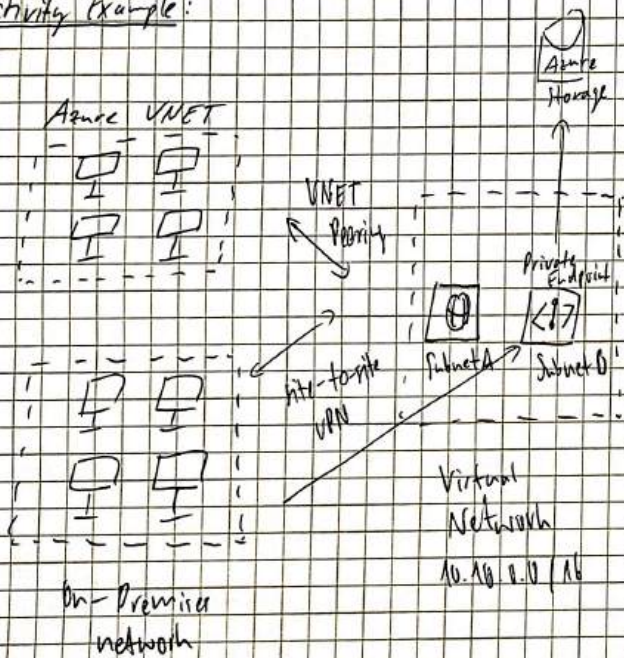 Example:
Azure
Storage
Azure VNET
VNET
Peering
Private
Endpoint
Subnet A
Subnet B
site-to-site
VPN
Virtual
Network
10.10.0.0/16
On-Premises
network